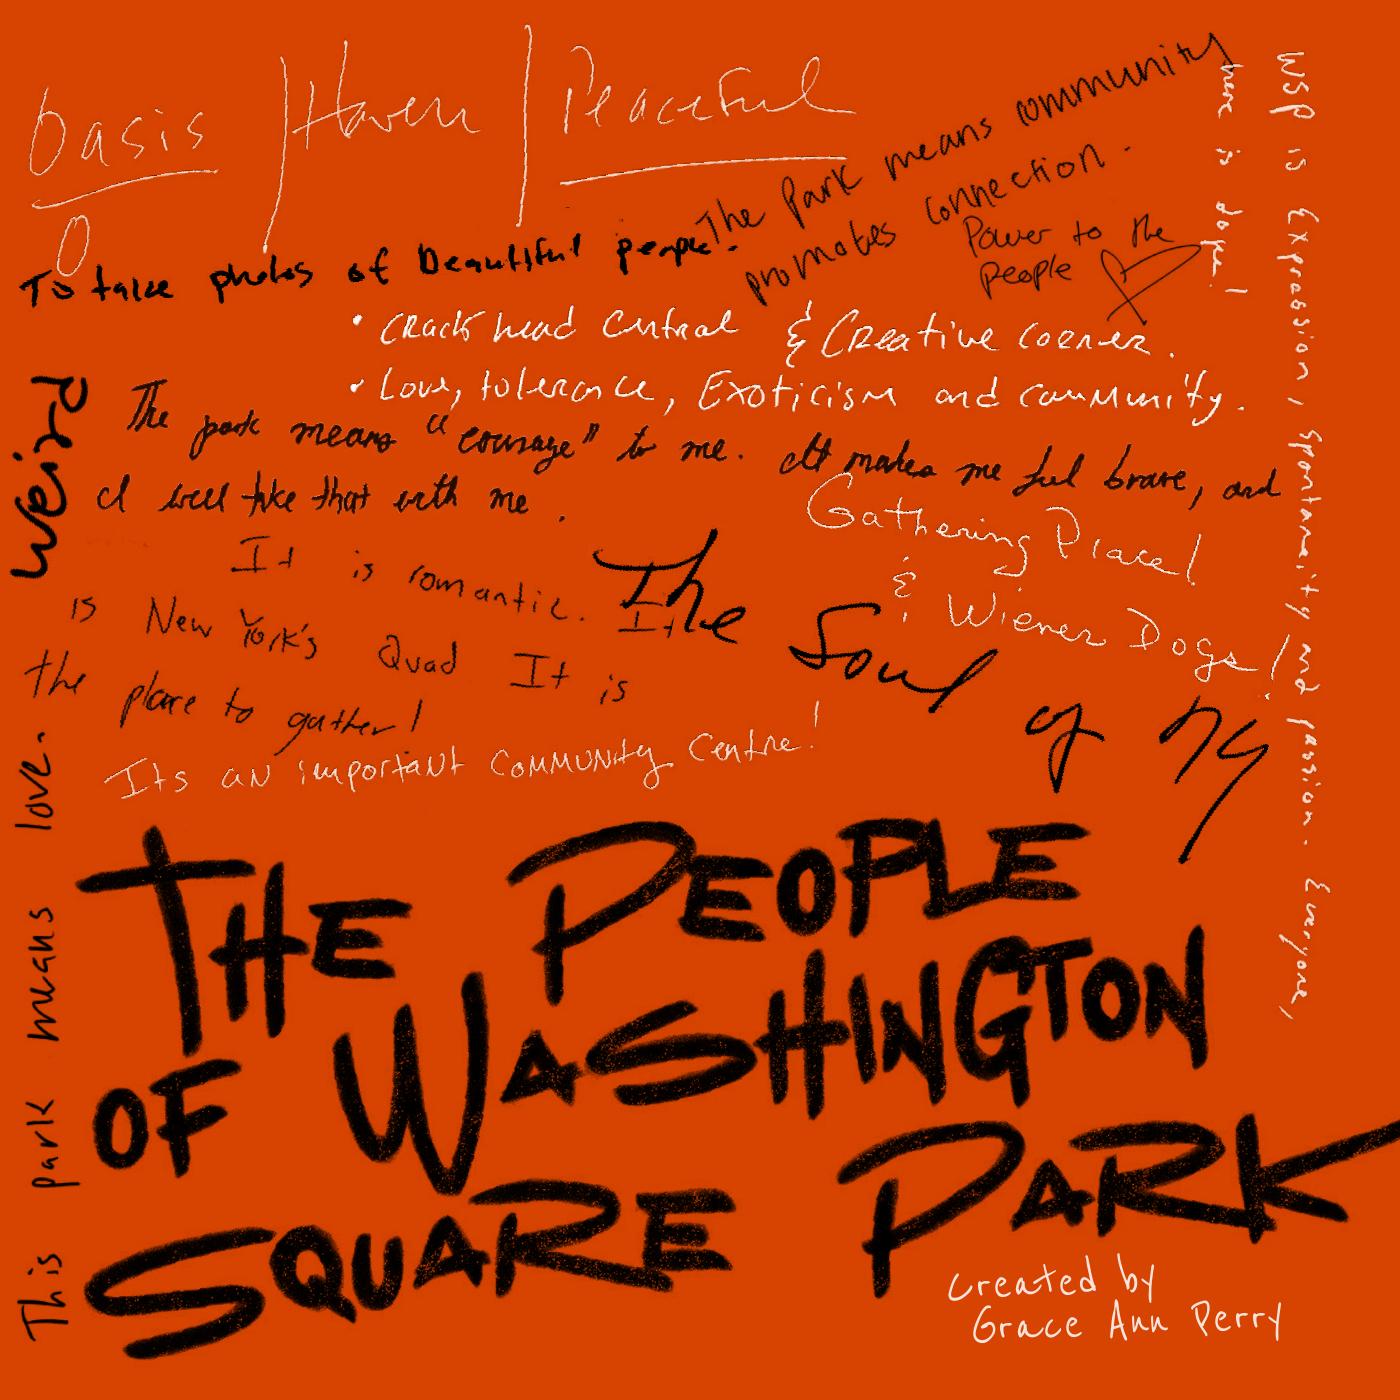 Oasis / Haven / Peaceful
The park means community
promotes connection.
Power to the
people
To take photos of beautiful people.
• Crack head central & Creative corner.
• Love, tolerance, Exoticism and community.
The park means "courage" to me. It makes me feel brave, and
I will take that with me.
Weird
Gathering Place!
& Wiener Dogs!
It is romantic. It
is New York's Quad It is
the place to gather!
The Soul of NY
Its an important community centre!
WSP is Expression, spontaneity and passion. Everyone,
here is dope!
This park means love.
THE PEOPLE
OF WASHINGTON
SQUARE PARK
created by
Grace Ann Perry